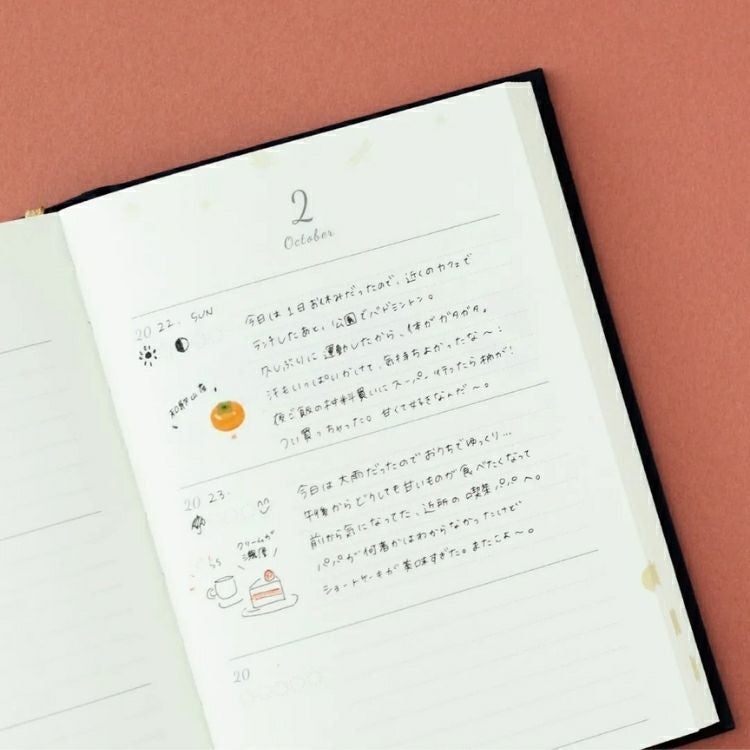 2
October
2022. SUN
今日は1日お休みだったので、近くのカフェで
ランチしたあと、公園でバドミントン。
久しぶりに運動したから、体がガタガタ。
汗もいっぱいかけて、気持ちよかったな〜!
夜ご飯の材料買いにスーパー行ったら柿が!
つい買っちゃった。甘くて好きなんだ〜。
和歌山産
2023.
今日は大雨だったのでおうちでゆっくり...
午後からどうしても甘いものが食べたくなって
前から気になってた、近所の喫茶パパへ。
パパが何者かはわからなかったけど
ショートケーキが美味すぎた。またこよ〜。
クリームが
濃厚
20